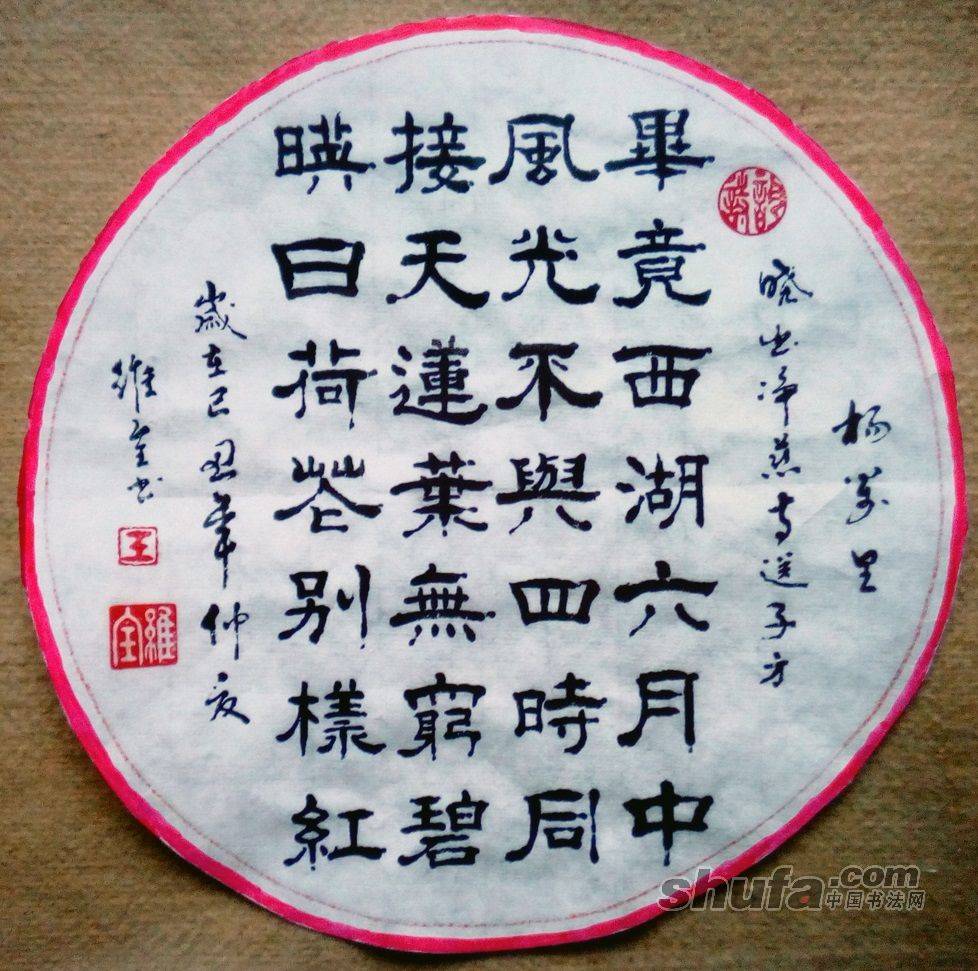 杨萬里
晓出净慈寺送子方
畢竟西湖六月中
風光不與四時同
接天蓮葉無窮碧
暎日荷花别樣紅
歲在己丑年仲夏
維全书
王
維全
shufa.com
中国书法网